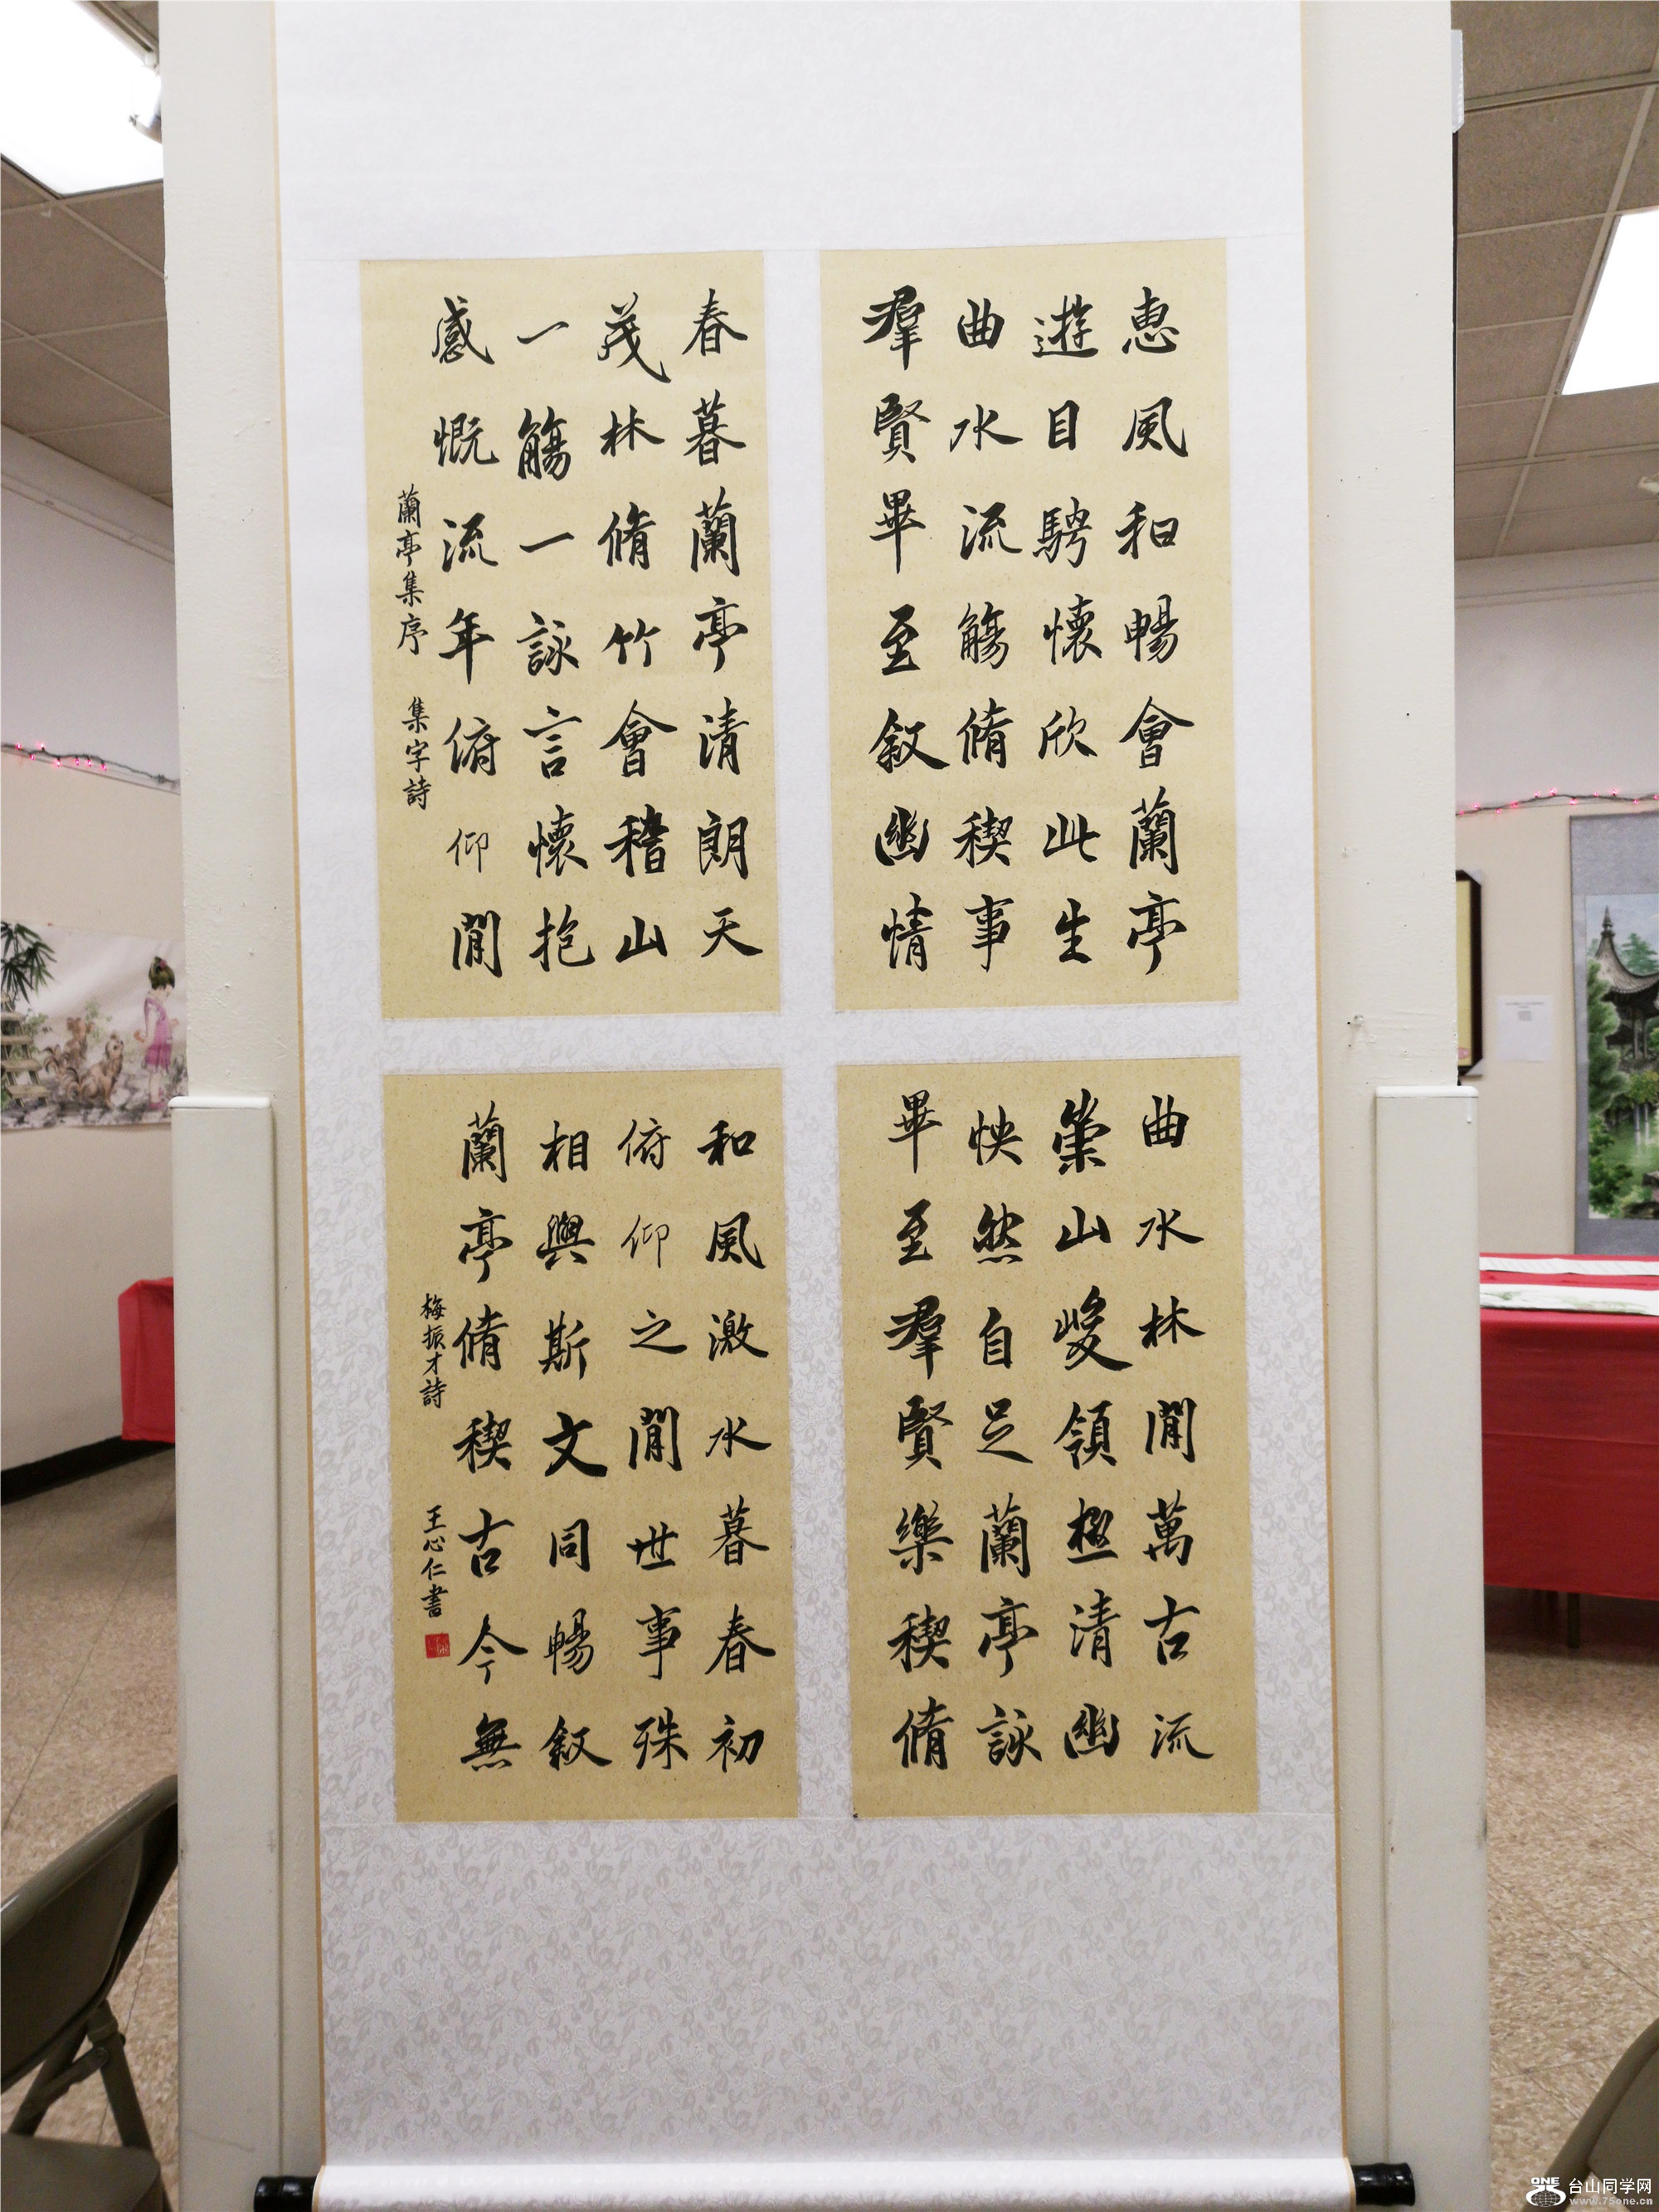 惠風和暢會蘭亭
遊目騁懷欣此生
曲水流觴脩稧事
羣賢畢至叙幽情
春暮蘭亭清朗天
茂林脩竹會稽山
一觴一詠言懷抱
感慨流年俯仰閒
蘭亭集序 集字詩
曲水林閒萬古流
崇山峻領極清幽
怏然自足蘭亭詠
畢至羣賢樂稧脩
和風激水暮春初
俯仰之閒世事殊
相與斯文同暢叙
蘭亭脩稧古今無
梅振才詩 王心仁書
ONE 台山同学网
www.75one.cn